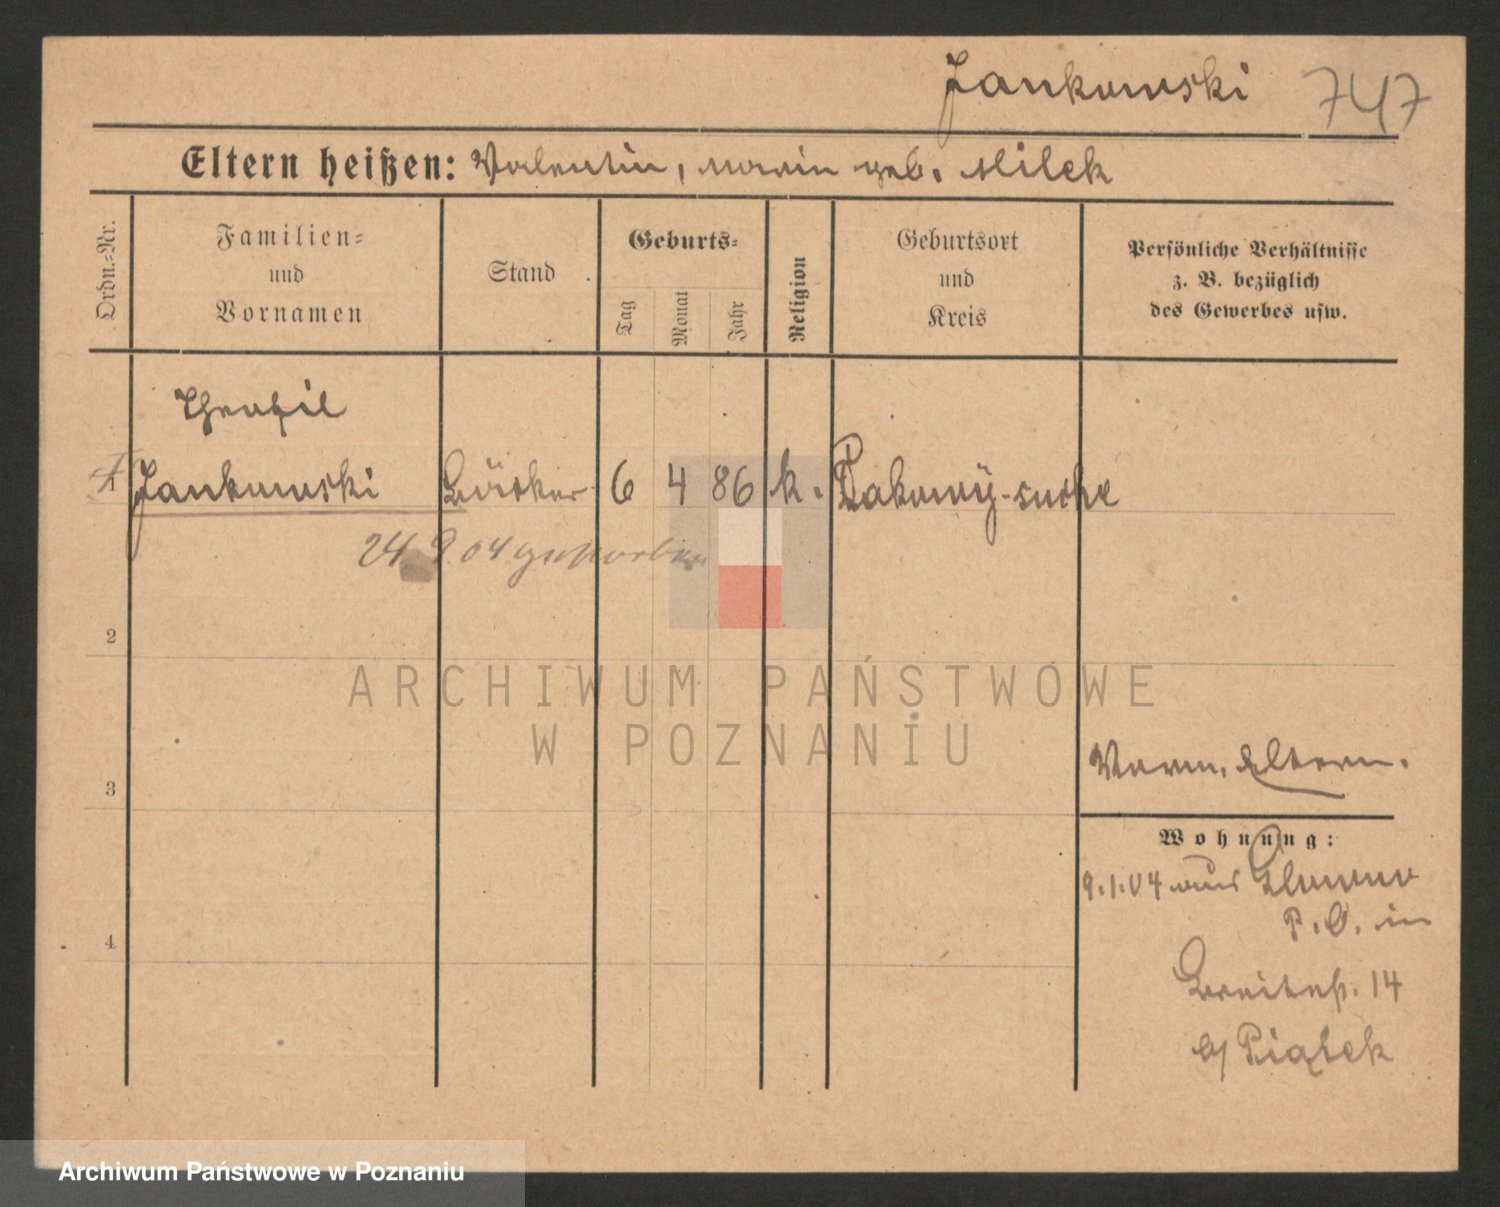 Jankowski 747
Eltern heißen: Valentin, Marie geb. Milek
Ordn.=Nr.
Familien=
und
Vornamen
Stand
Geburts=
Tag
Monat
Jahr
Religion
Geburtsort
und
Kreis
Persönliche Verhältnisse
z. B. bezüglich
des Gewerbes usw.
Theofil
1 Jankowski Bäcker 6 4 86 k. Dakowy-suche
24 9.04 gestorben
2
ARCHIWUM PAŃSTWOWE
W POZNANIU
3
Vorm. Eltern.
Wohnung:
9.1.04 aus
P. O. in
4
Breitestr. 14
b/ Piątek
Archiwum Państwowe w Poznaniu